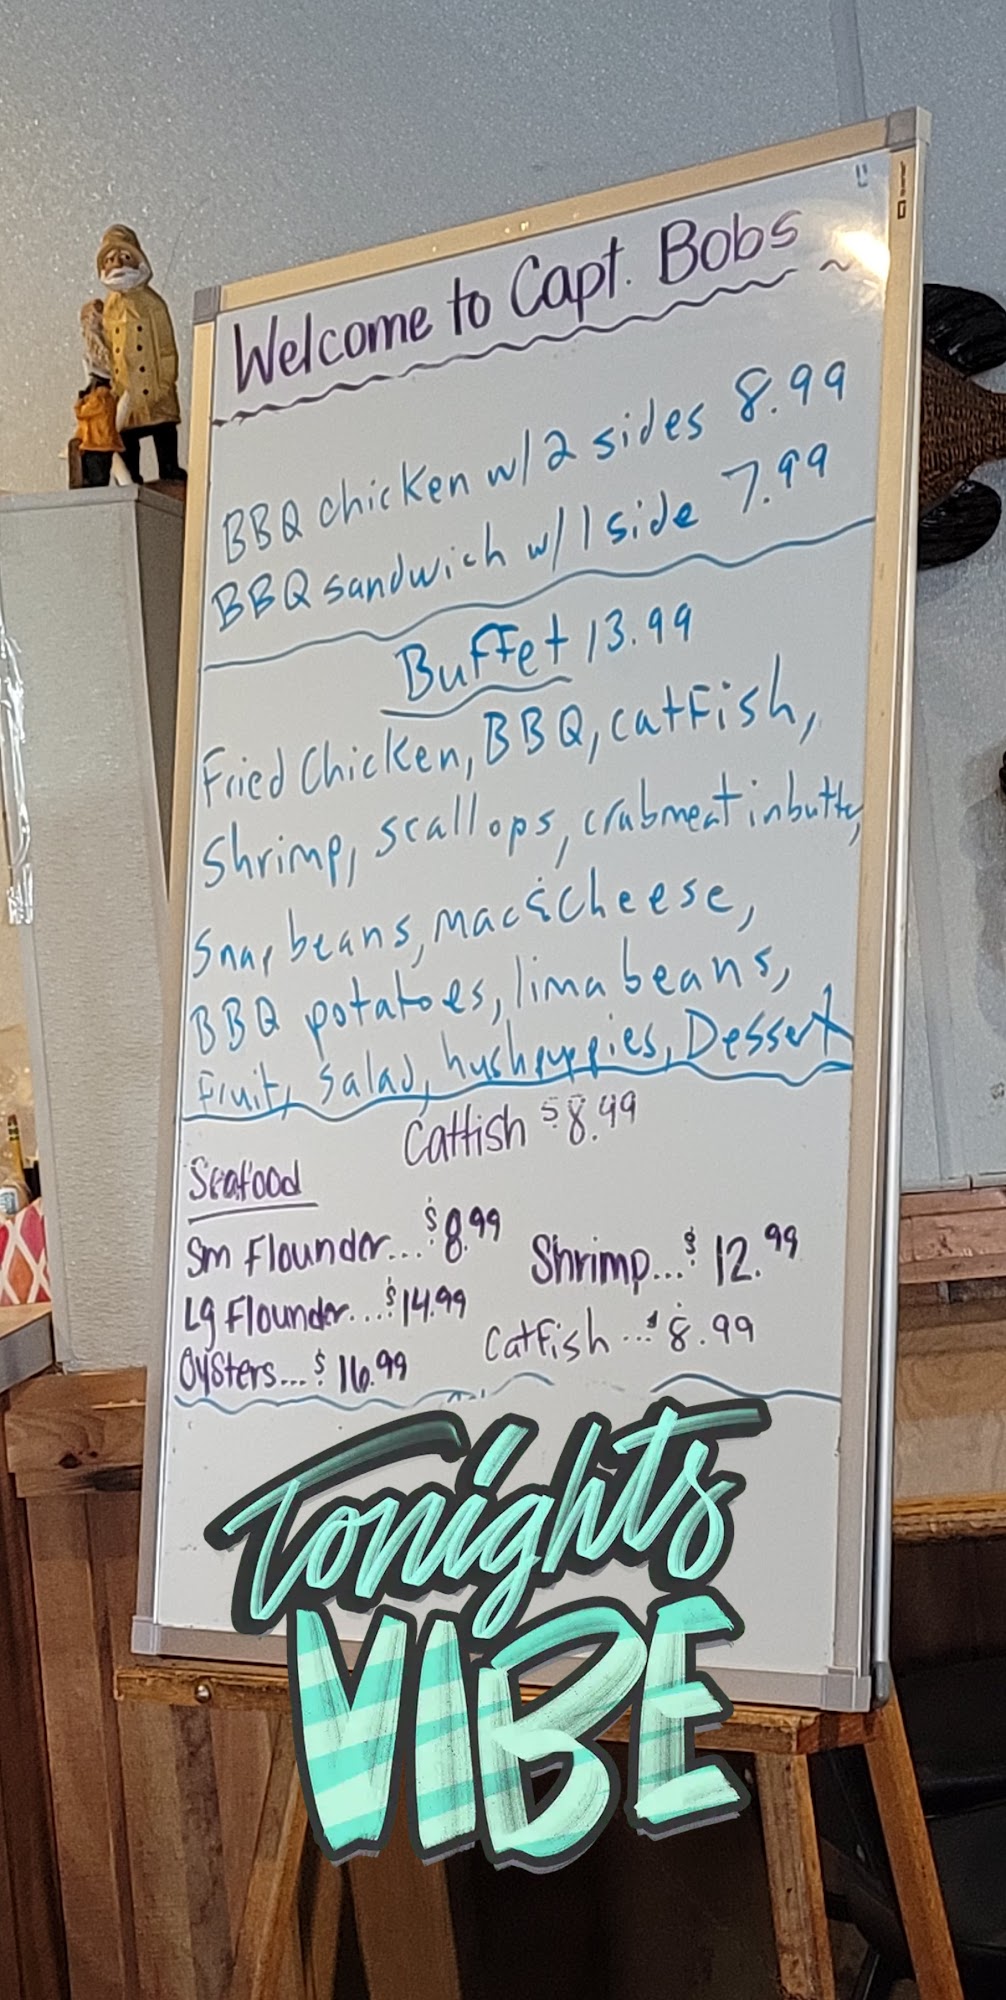 Welcome to Capt. Bobs
BBQ chicken w/ 2 sides 8.99
BBQ sandwich w/ 1 side 7.99
Buffet 13.99
Fried Chicken, BBQ, catfish,
Shrimp, scallops, crabmeat in butter,
Snap beans, mac & cheese,
BBQ potatoes, lima beans,
Fruit, Salad, hushpuppies, Dessert
Catfish $8.99
Seafood
Sm Flounder...$8.99
Shrimp...$12.99
Lg Flounder...$14.99
Catfish...$8.99
Oysters...$16.99
Tonights
VIBE